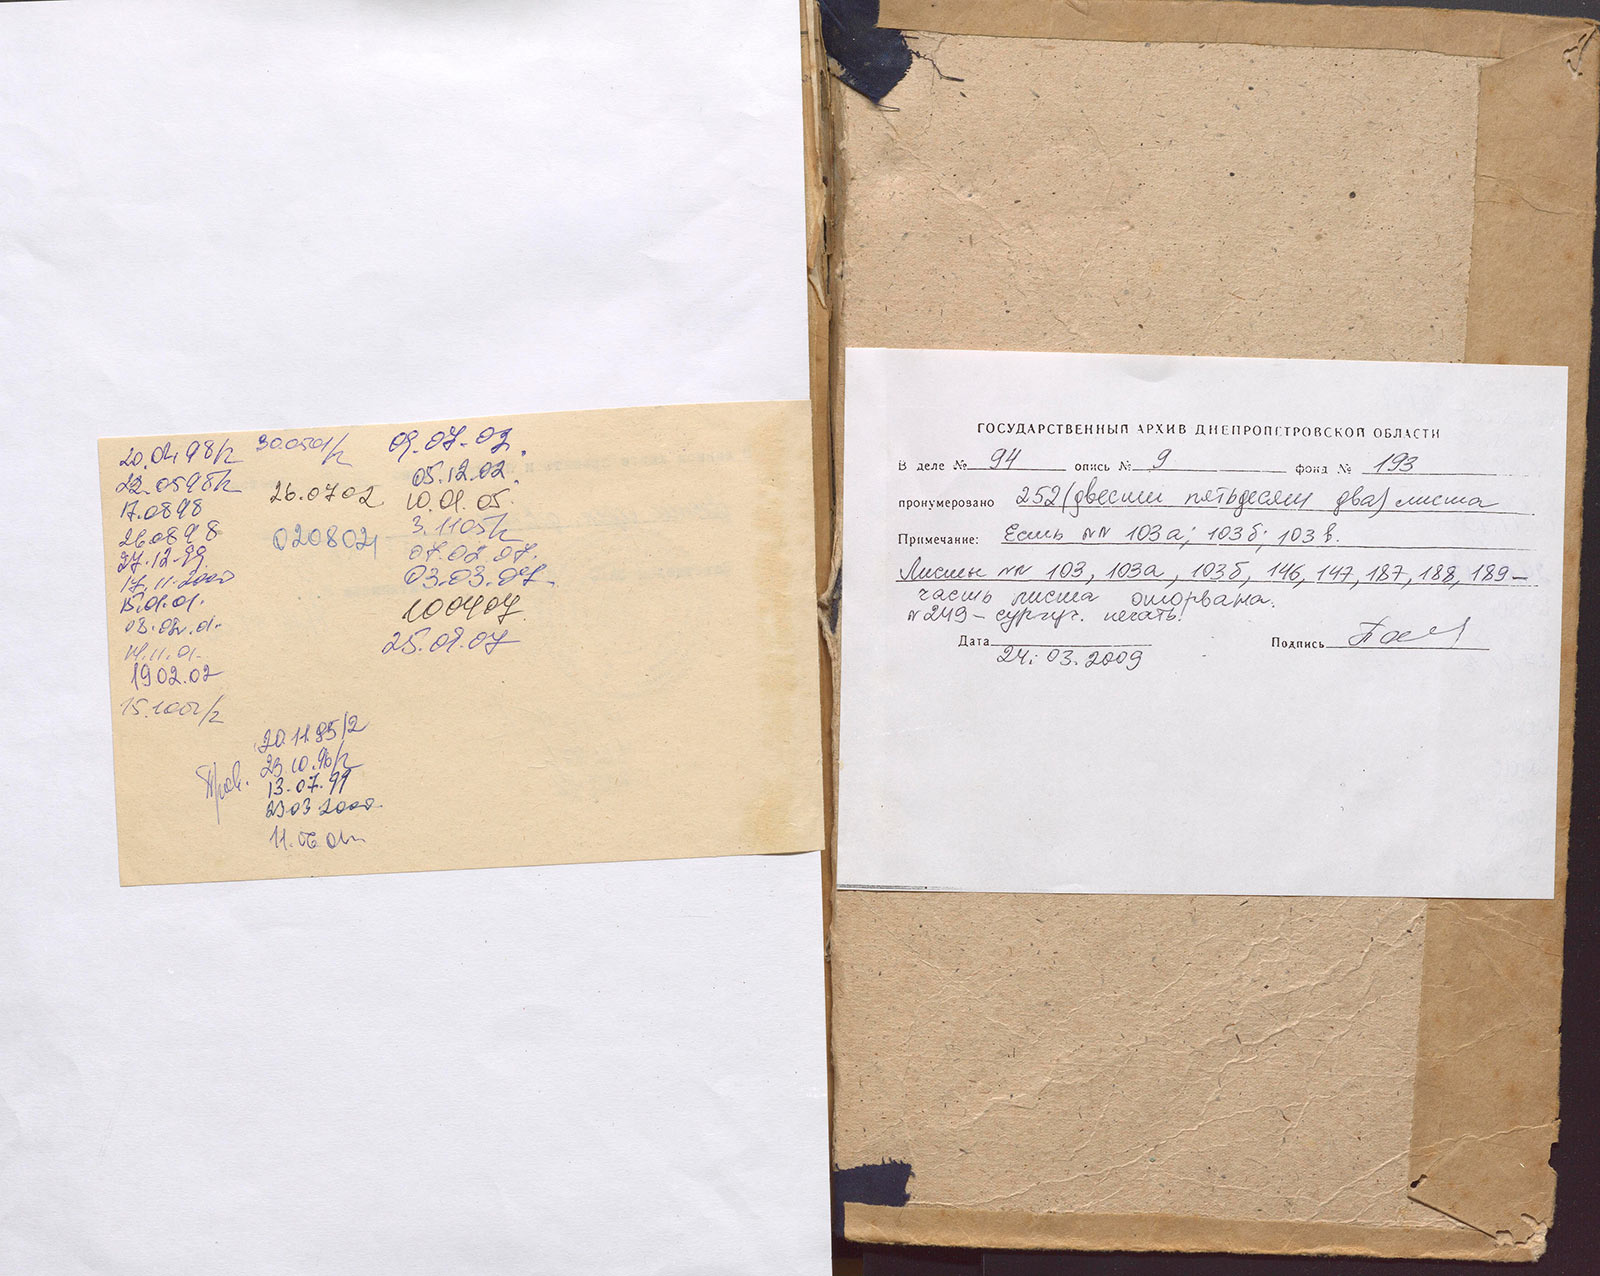 20.04.98/2
22.0598/2
17.0898
26.0898
27.12.99
17.11.2000
15.01.01.
08.02.01.
14.11.01.
1902.02
15.1002/2
30.0501/2
26.0702
020802
09.07.02.
05.12.02.
10.01.05.
3.1105/2
07.02.07.
03.03.07.
100407
25.09.07
Пров.
20.11.95/2
23.10.96/2
13.07.99
23.03 2000
11.06.01
ГОСУДАРСТВЕННЫЙ АРХИВ ДНЕПРОПЕТРОВСКОЙ ОБЛАСТИ
В деле № 94 опись № 9 фонд № 193
пронумеровано 252 (двести пятьдесят два) листа
Примечание: Есть №№ 103а; 103б; 103в.
Листы №№ 103, 103а, 103б, 146, 147, 187, 188, 189 –
часть листа оторвана.
№ 249 – сургуч. печать.
Дата 24.03.2009 Подпись